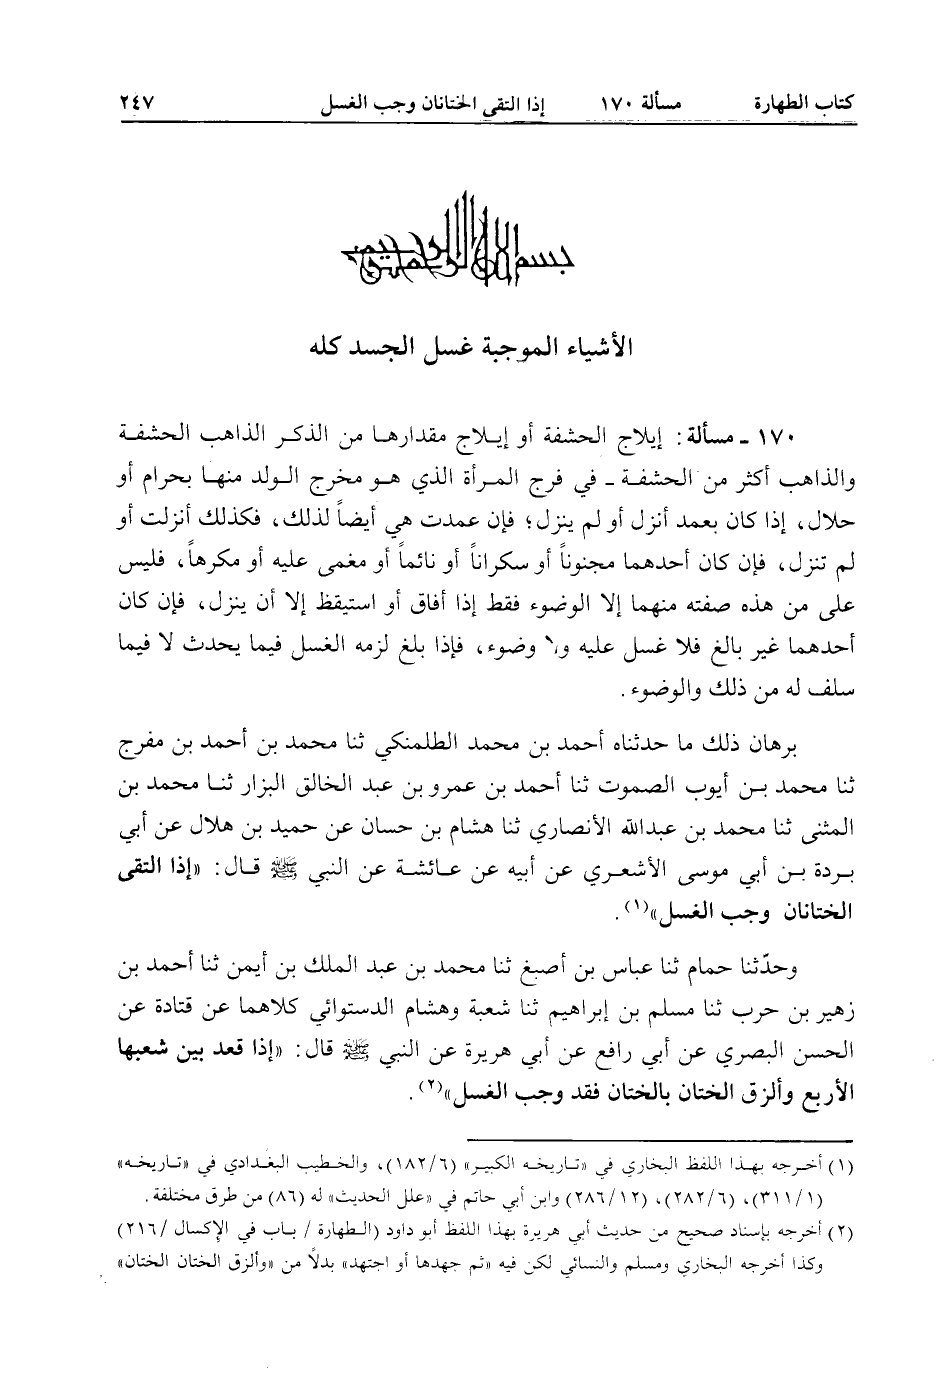 كتاب الطهارة مسألة ١٧٠ إذا التقى الختانان وجب الغسل ٢٤٧
بسم الله الرحمن الرحيم
الأشياء الموجبة غسل الجسد كله
١٧٠ ـ مسألة: إيلاج الحشفة أو إيلاج مقدارها من الذكر الذاهب الحشفة
والذاهب أكثر من الحشفة ـ في فرج المرأة الذي هو مخرج الولد منها بحرام أو
حلال، إذا كان بعمد أنزل أو لم ينزل؛ فإن عمدت هي أيضاً لذلك، فكذلك أنزلت أو
لم تنزل، فإن كان أحدهما مجنوناً أو سكراناً أو نائماً أو مغمى عليه أو مكرهاً، فليس
على من هذه صفته منهما إلا الوضوء فقط إذا أفاق أو استيقظ إلا أن ينزل، فإن كان
أحدهما غير بالغ فلا غسل عليه ولا وضوء، فإذا بلغ لزمه الغسل فيما يحدث لا فيما
سلف له من ذلك والوضوء.
برهان ذلك ما حدثناه أحمد بن محمد الطلمنكي ثنا محمد بن أحمد بن مفرج
ثنا محمد بن أيوب الصموت ثنا أحمد بن عمرو بن عبد الخالق البزار ثنا محمد بن
المثنى ثنا محمد بن عبدالله الأنصاري ثنا هشام بن حسان عن حميد بن هلال عن أبي
بردة بن أبي موسى الأشعري عن أبيه عن عائشة عن النبي ﷺ قال: «إذا التقى
الختانان وجب الغسل»(١).
وحدّثنا حمام ثنا عباس بن أصبغ ثنا محمد بن عبد الملك بن أيمن ثنا أحمد بن
زهير بن حرب ثنا مسلم بن إبراهيم ثنا شعبة وهشام الدستوائي كلاهما عن قتادة عن
الحسن البصري عن أبي رافع عن أبي هريرة عن النبي ﷺ قال: «إذا قعد بين شعبها
الأربع وألزق الختان بالختان فقد وجب الغسل»(٢).
(١) أخرجه بهذا اللفظ البخاري في «تاريخه الكبير» (١٨٢/٦)، والخطيب البغدادي في «تاريخه»
(٣١١/١)، (٢٨٢/٦)، (٢٨٦/١٢) وابن أبي حاتم في «علل الحديث» له (٨٦) من طرق مختلفة.
(٢) أخرجه بإسناد صحيح من حديث أبي هريرة بهذا اللفظ أبو داود (الطهارة / باب في الإكسال /٢١٦)
وكذا أخرجه البخاري ومسلم والنسائي لكن فيه «ثم جهدها أو اجتهد» بدلاً من «وألزق الختان الختان»